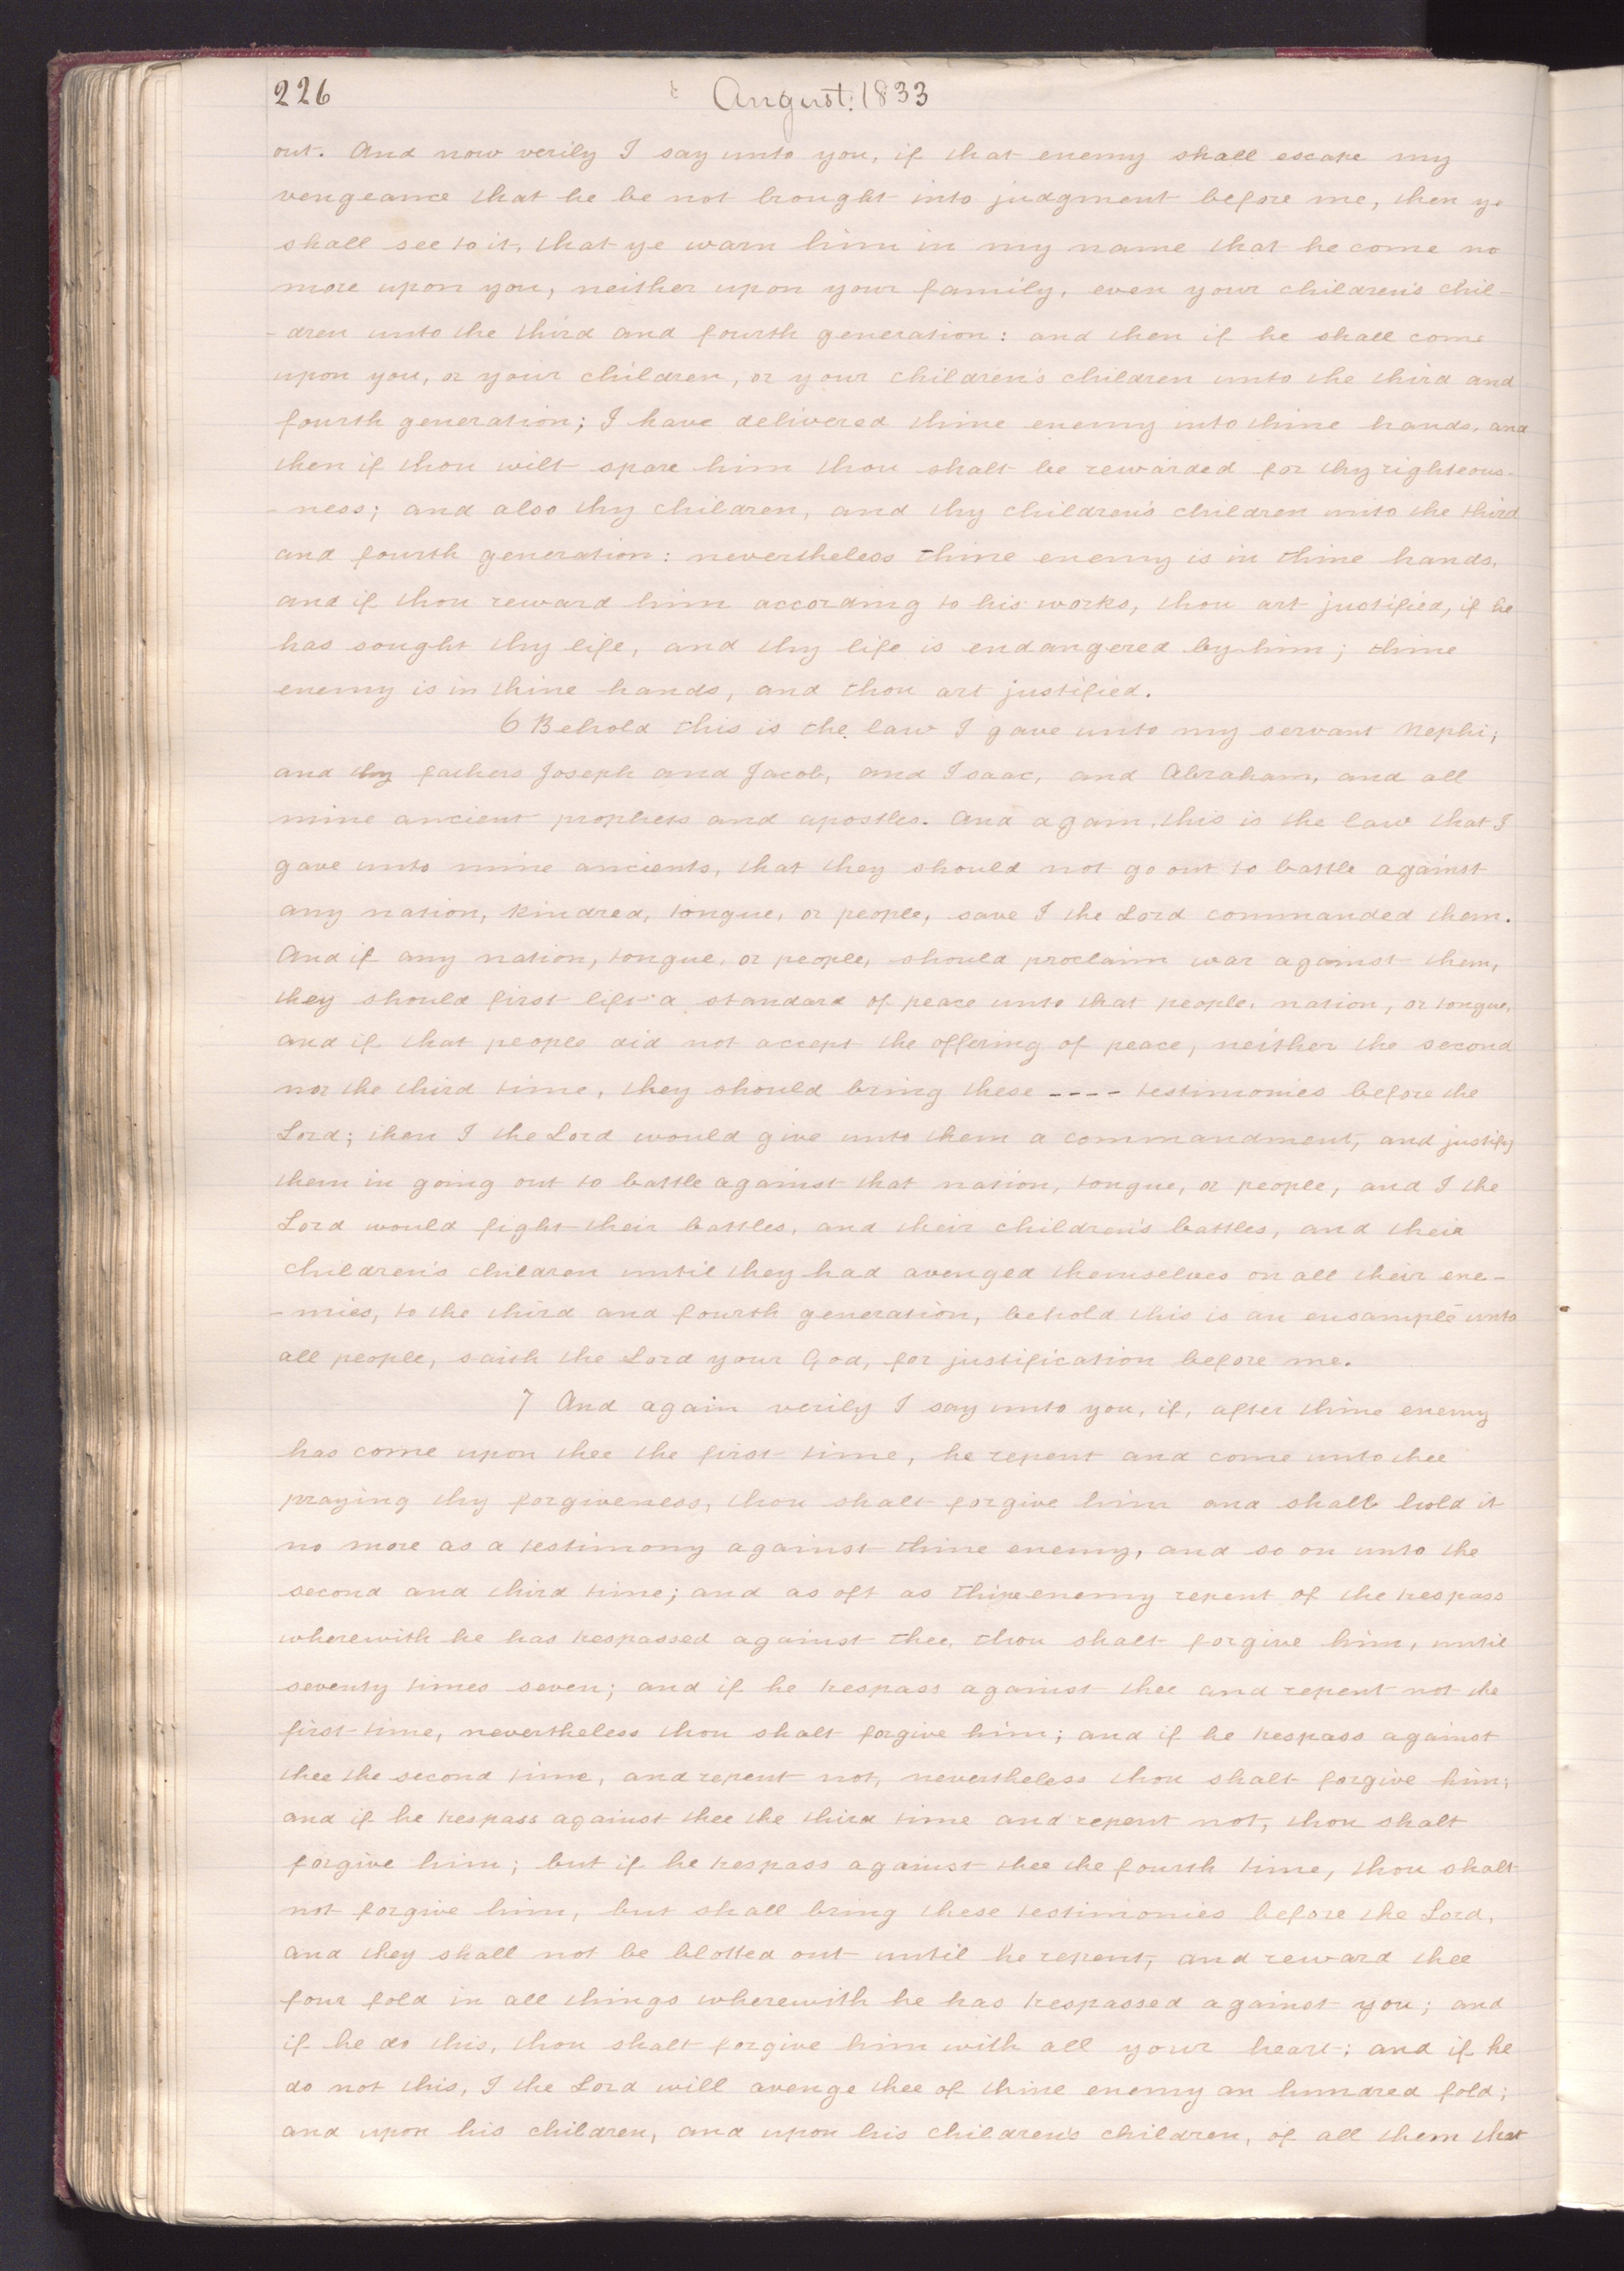 226 August. 1833
out. And now verily I say unto you, if that enemy shall escape my
vengeance that he be not brought into judgment before me, then ye
shall see to it, that ye warn him in my name that he come no
more upon you, neither upon your family, even your children's chil-
-dren unto the third and fourth generation: and then if he shall come
upon you, or your children, or your children's children unto the third and
fourth generation; I have delivered thine enemy into thine hands, and
then if thou wilt spare him thou shalt be rewarded for thy righteous-
-ness; and also thy children, and thy children's children unto the third
and fourth generation: nevertheless thine enemy is in thine hands,
and if thou reward him according to his works, thou art justified, if he
has sought thy life, and thy life is endangered by him; thine
enemy is in thine hands, and thou art justified.
6 Behold this is the law I gave unto my servant Nephi;
and thy fathers Joseph and Jacob, and Isaac, and Abraham, and all
mine ancient prophets and apostles. And again, this is the law that I
gave unto mine ancients, that they should not go out to battle against
any nation, kindred, tongue, or people, save I the Lord commanded them.
And if any nation, tongue, or people, should proclaim war against them,
they should first lift a standard of peace unto that people, nation, or tongue,
and if that people did not accept the offering of peace, neither the second
nor the third time, they should bring these ---- testimonies before the
Lord; then I the Lord would give unto them a commandment, and justify
them in going out to battle against that nation, tongue, or people, and I the
Lord would fight their battles, and their children's battles, and their
children's children until they had avenged themselves on all their ene-
-mies, to the third and fourth generation, behold this is an ensample unto
all people, saith the Lord your God, for justification before me.
7 And again verily I say unto you, if, after thine enemy
has come upon thee the first time, he repent and come unto thee
praying thy forgiveness, thou shalt forgive him and shall hold it
no more as a testimony against thine enemy, and so on unto the
second and third time; and as oft as thine enemy repent of the trespass
wherewith he has trespassed against thee, thou shalt forgive him, until
seventy times seven; and if he trespass against thee and repent not the
first time, nevertheless thou shalt forgive him; and if he trespass against
thee the second time, and repent not, nevertheless thou shalt forgive him;
and if he trespass against thee the third time and repent not, thou shalt
forgive him; but if he trespass against thee the fourth time, thou shalt
not forgive him, but shall bring these testimonies before the Lord,
and they shall not be blotted out until he repent, and reward thee
four fold in all things wherewith he has trespassed against you; and
if he do this, thou shalt forgive him with all your heart; and if he
do not this, I the Lord will avenge thee of thine enemy an hundred fold;
and upon his children, and upon his children's children, of all them that